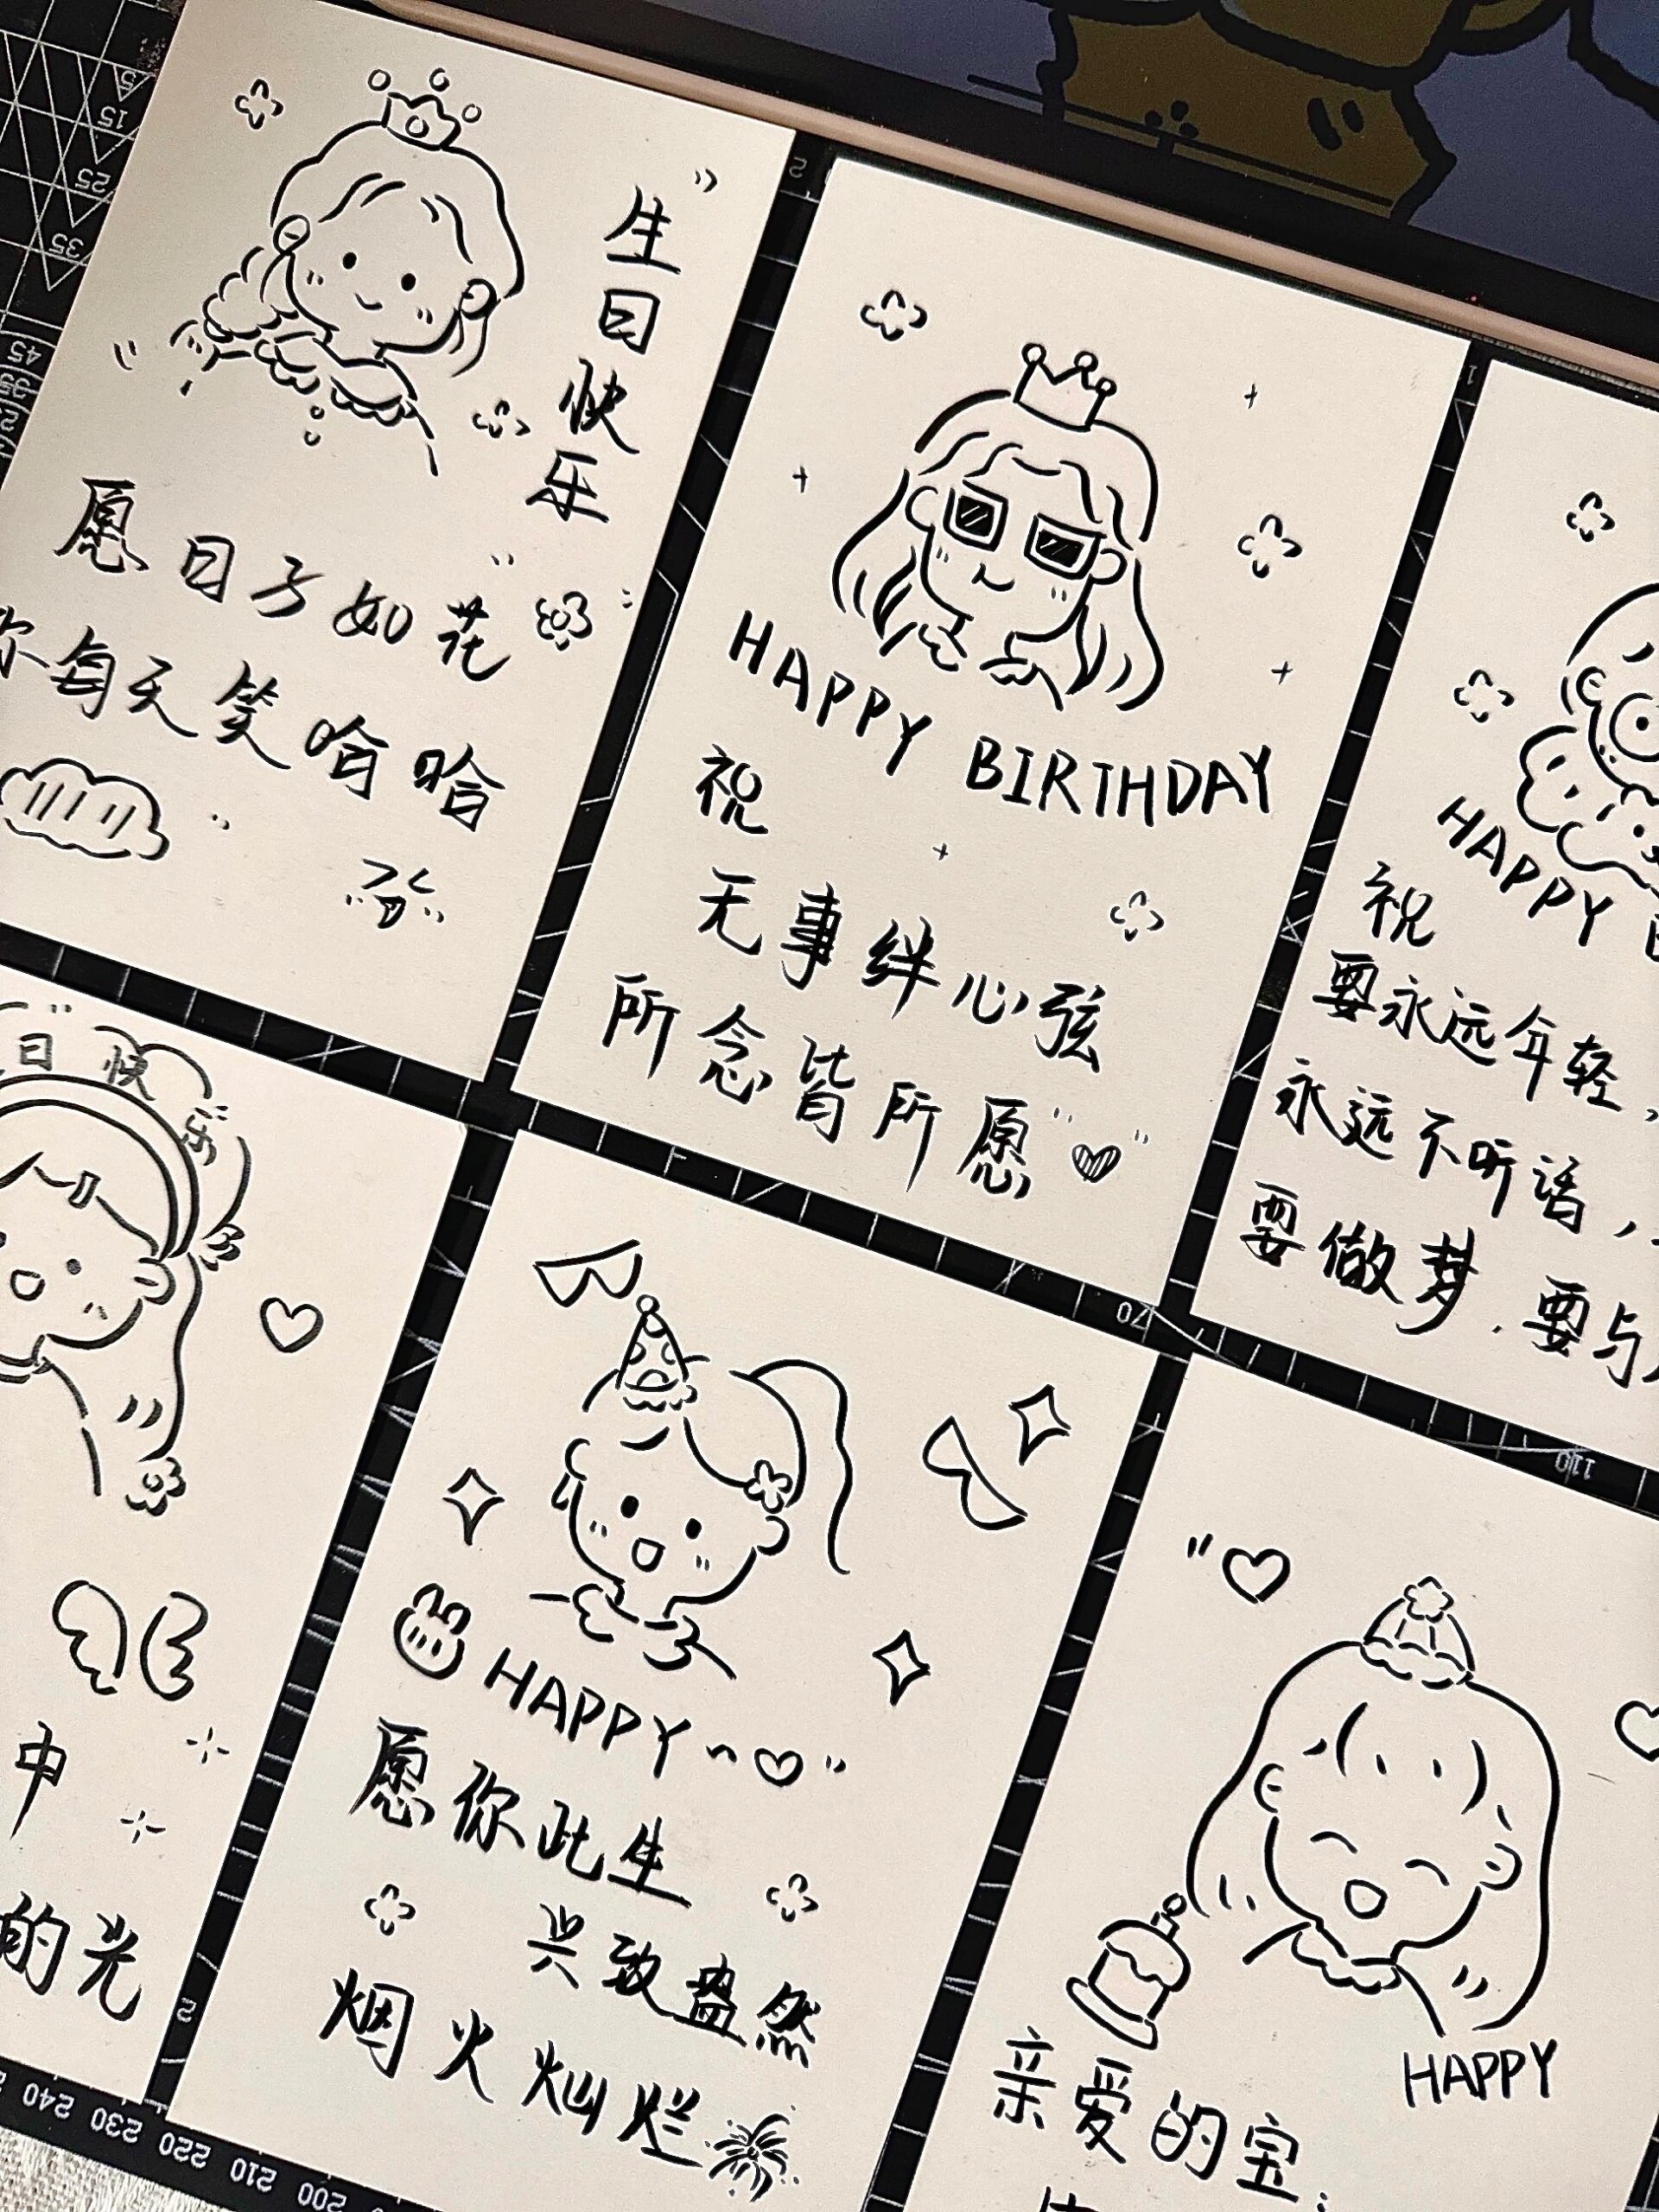 生日快乐
愿日子如花
你每天笑哈哈
HAPPY BIRTHDAY
祝
无事绊心弦
所念皆所愿
HAPPY
祝
要永远年轻，
永远不听话，
要做梦，要与
日快乐
中
的光
HAPPY~
愿你此生
兴致盎然
烟火灿烂
HAPPY
亲爱的宝：
5
15
25
35
45
70
110
240
230
220
210
200